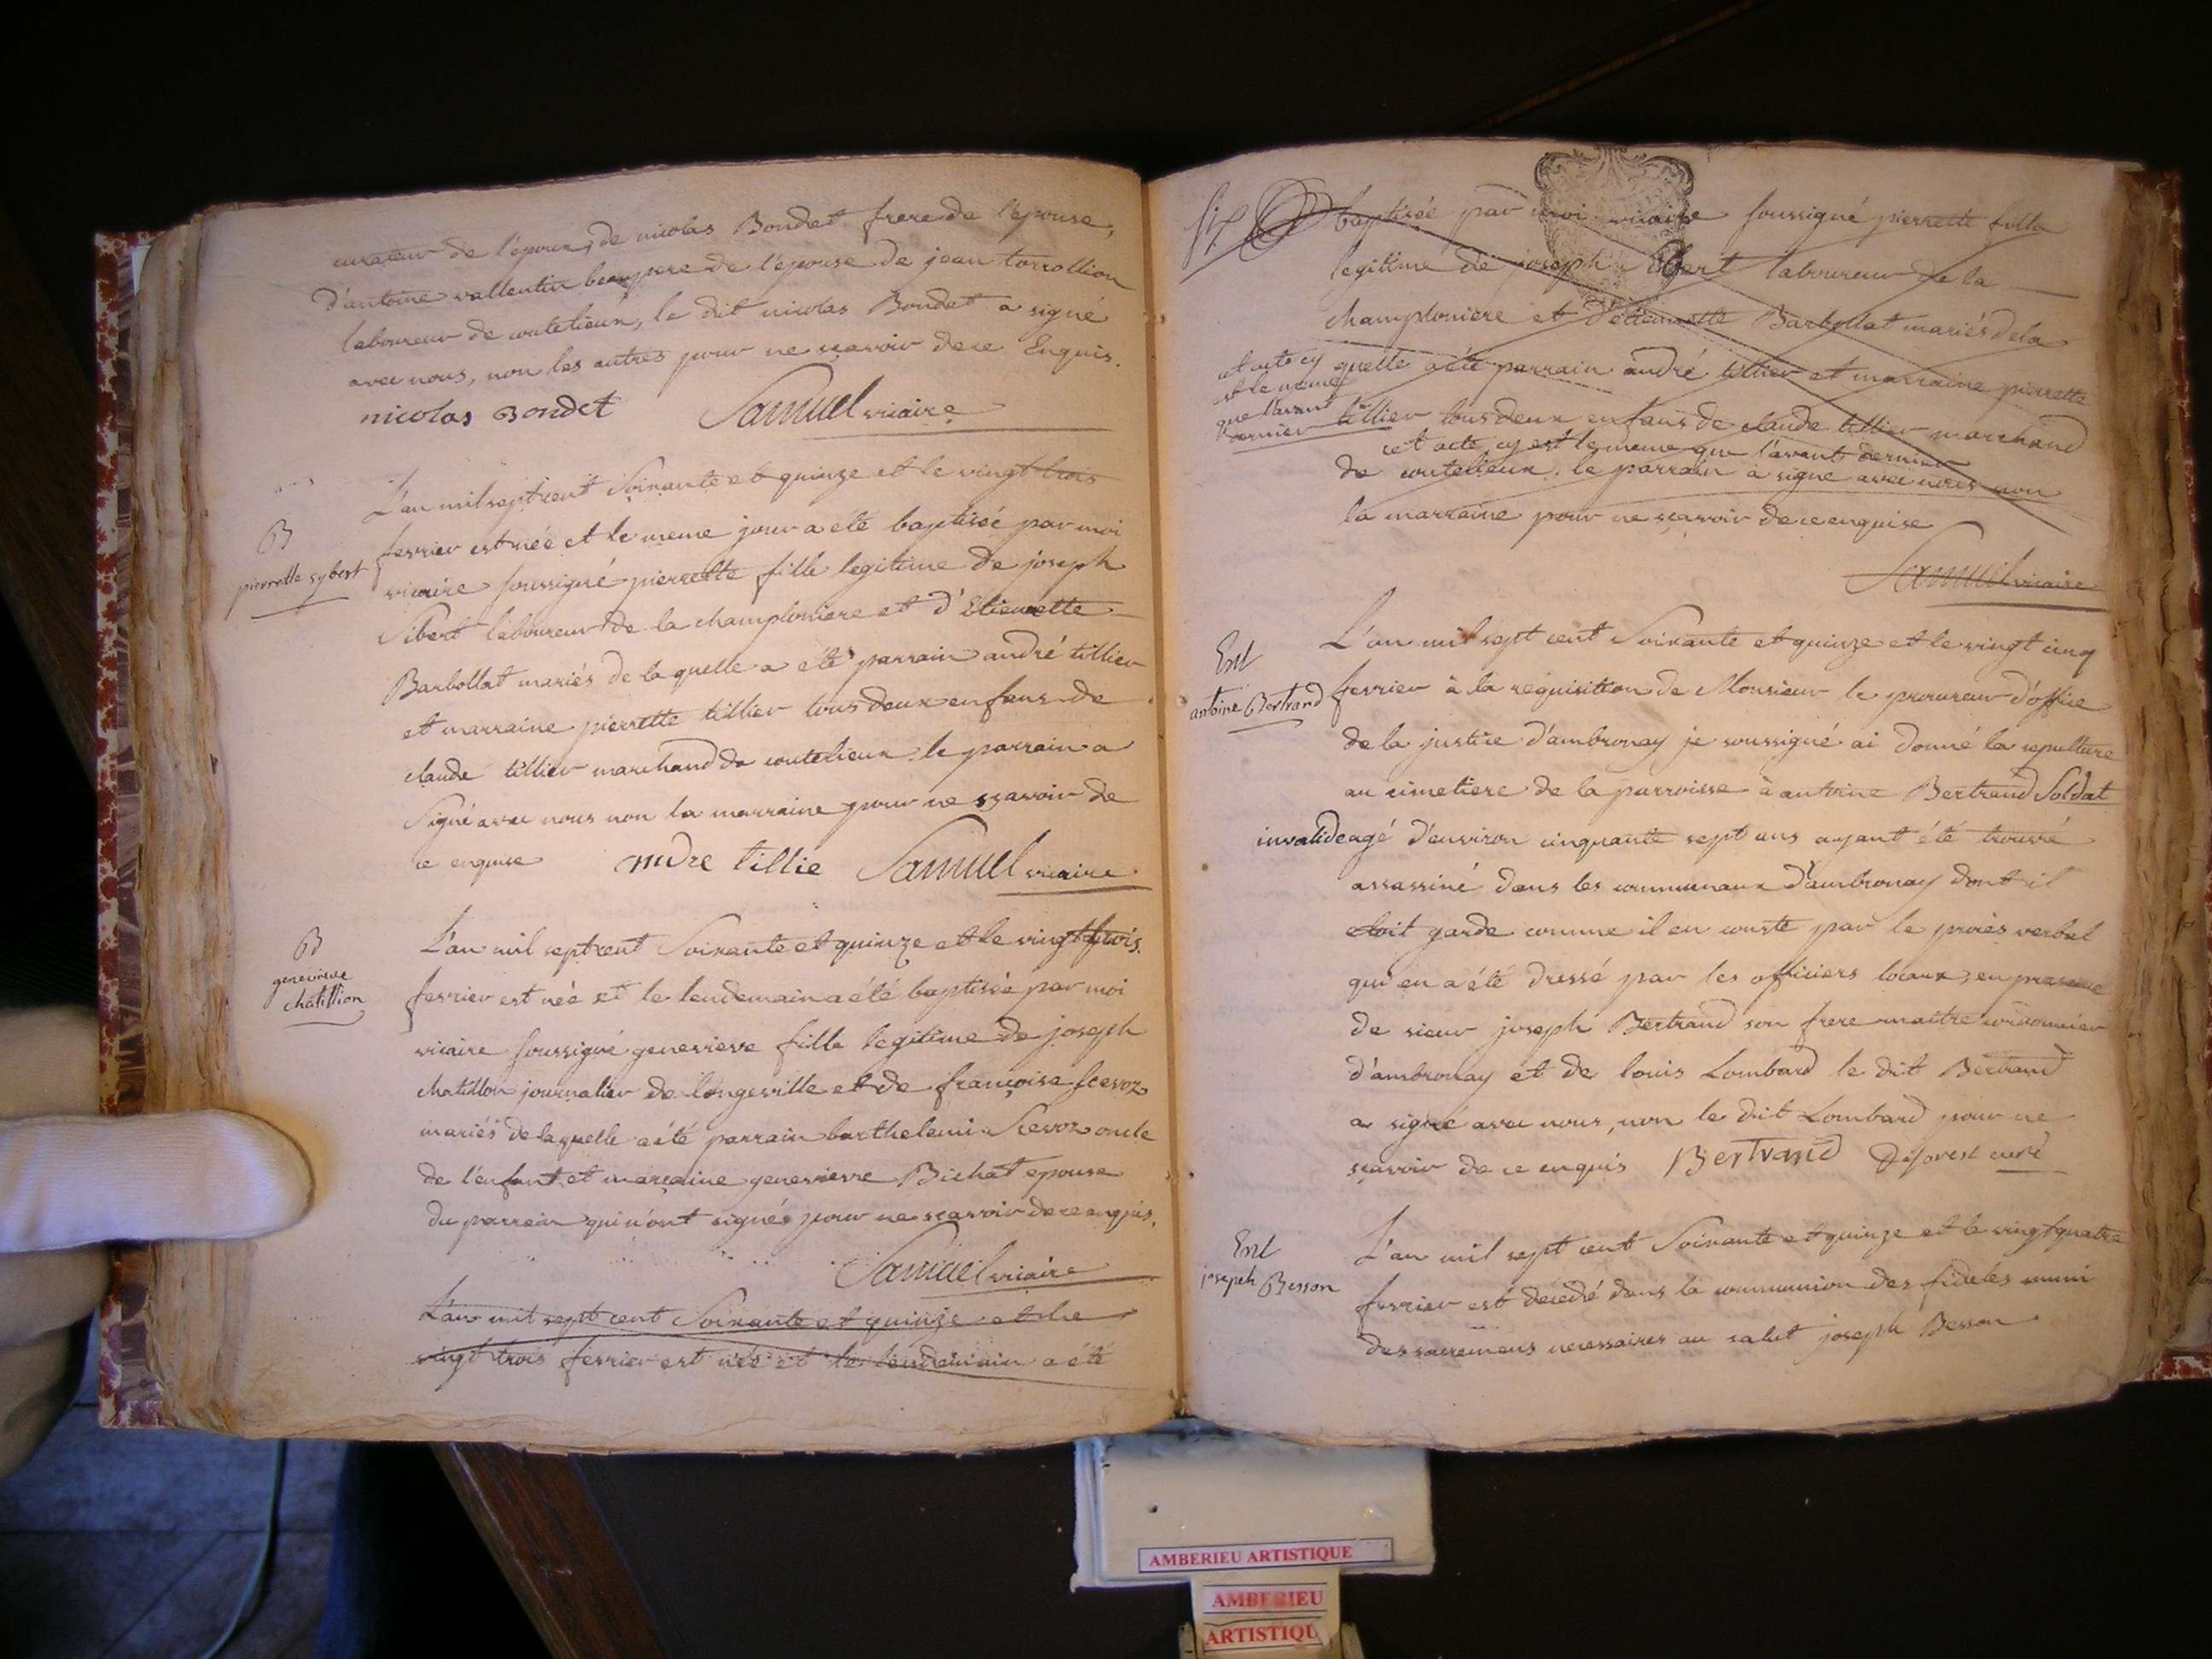 curateur de l'epoux, de nicolas Bondet frere de l'epouse,
d'antoine vallentin beaupere de l'epouse de jean torrollion
laboureur de coutelieux, le dit nicolas Bondet a signé
avec nous, non les autres pour ne sçavoir de ce Enquis.
nicolas Bondet Samuel vicaire
L'an mil sept cent Soixante et quinze et le vingt trois
B
pierrette sybert
fevrier est née et le meme jour a été baptisée par moi
vicaire soussigné pierrette fille legitime de joseph
Sibert laboureur de la champloniere et d'Etiennette
Barbollat mariés de laquelle a été parrain andré tillier
et marraine pierrette tillier tous deux enfans de
claude tillier marchand de coutelieux. le parrain a
Signé avec nous non la marraine pour ne sçavoir de
ce enquise ndre tillie Samuel vicaire
B
genevieve
chatillion
L'an mil sept cent Soixante et quinze et le vingt trois
fevrier est née et le lendemain a été baptisée par moi
vicaire soussigné genevieve fille legitime de joseph
chatillon journalier de longeville et de françoise Scevoz
mariés de laquelle a été parrain barthelemi Scevoz oncle
de l'enfant et marraine genevieve Bichat epouse
du parrain qui n'ont signés pour ne sçavoir de ce enquis.
Samuel vicaire
L'an mil sept cent Soixante et quinze et le
vingt trois fevrier est née et le lendemain a été
six baptisée par moi vicaire soussigné pierrette fille
legitime de joseph Sibert laboureur de la
champloniere et d'étiennette Barbollat mariés de la
quelle a été parrain andré tillier et marraine pierrette
cet acte cy
est le meme
que l'avant
dernier
tillier tous deux enfans de claude tillier marchand
cet acte cy est le meme que l'avant dernier
de coutelieux. le parrain a signé avec nous non
la marraine pour ne sçavoir de ce enquise
Samuel vicaire
Ent
antoine Bertrand
L'an mil sept cent Soixante et quinze et le vingt cinq
fevrier à la requisition de Monsieur le procureur d'office
de la justice d'ambronay je soussigné ai donné la sepulture
au cimetiere de la parroisse à antoine Bertrand Soldat
invalide agé d'environ cinquante sept ans ayant été trouvé
assassiné dans les communaux d'ambronay dont il
etoit garde comme il en conste par le procès verbal
qui en a été dressé par les officiers locaux, en presence
de sieur joseph Bertrand son frere maitre cordonnier
d'ambronay et de louis Lombard le dit Bertrand
a signé avec nous, non le dit Lombard pour ne
sçavoir de ce enquis Bertrand Deforest curé
Ent
joseph Besson
L'an mil sept cent Soixante et quinze et le vingt quatre
fevrier est decedé dans la communion des fideles muni
des sacremens necessaires au salut joseph Besson
AMBERIEU ARTISTIQUE
AMBERIEU
ARTISTIQU